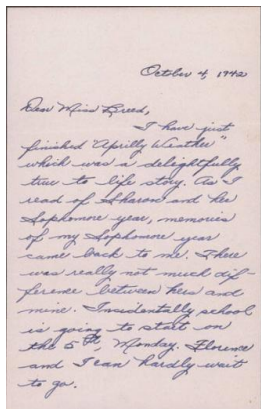 October 4, 1942
Dear Miss Breed,
I have just
finished "Aprilly Weather"
which was a delightfully
true to life story. As I
read of Sharon and her
Sophomore year, memories
of my Sophomore year
came back to me. There
was really not much dif-
ference between hers and
mine. Incidentally school
is going to start on
the 5th, Monday. Florence
and I can hardly wait
to go.